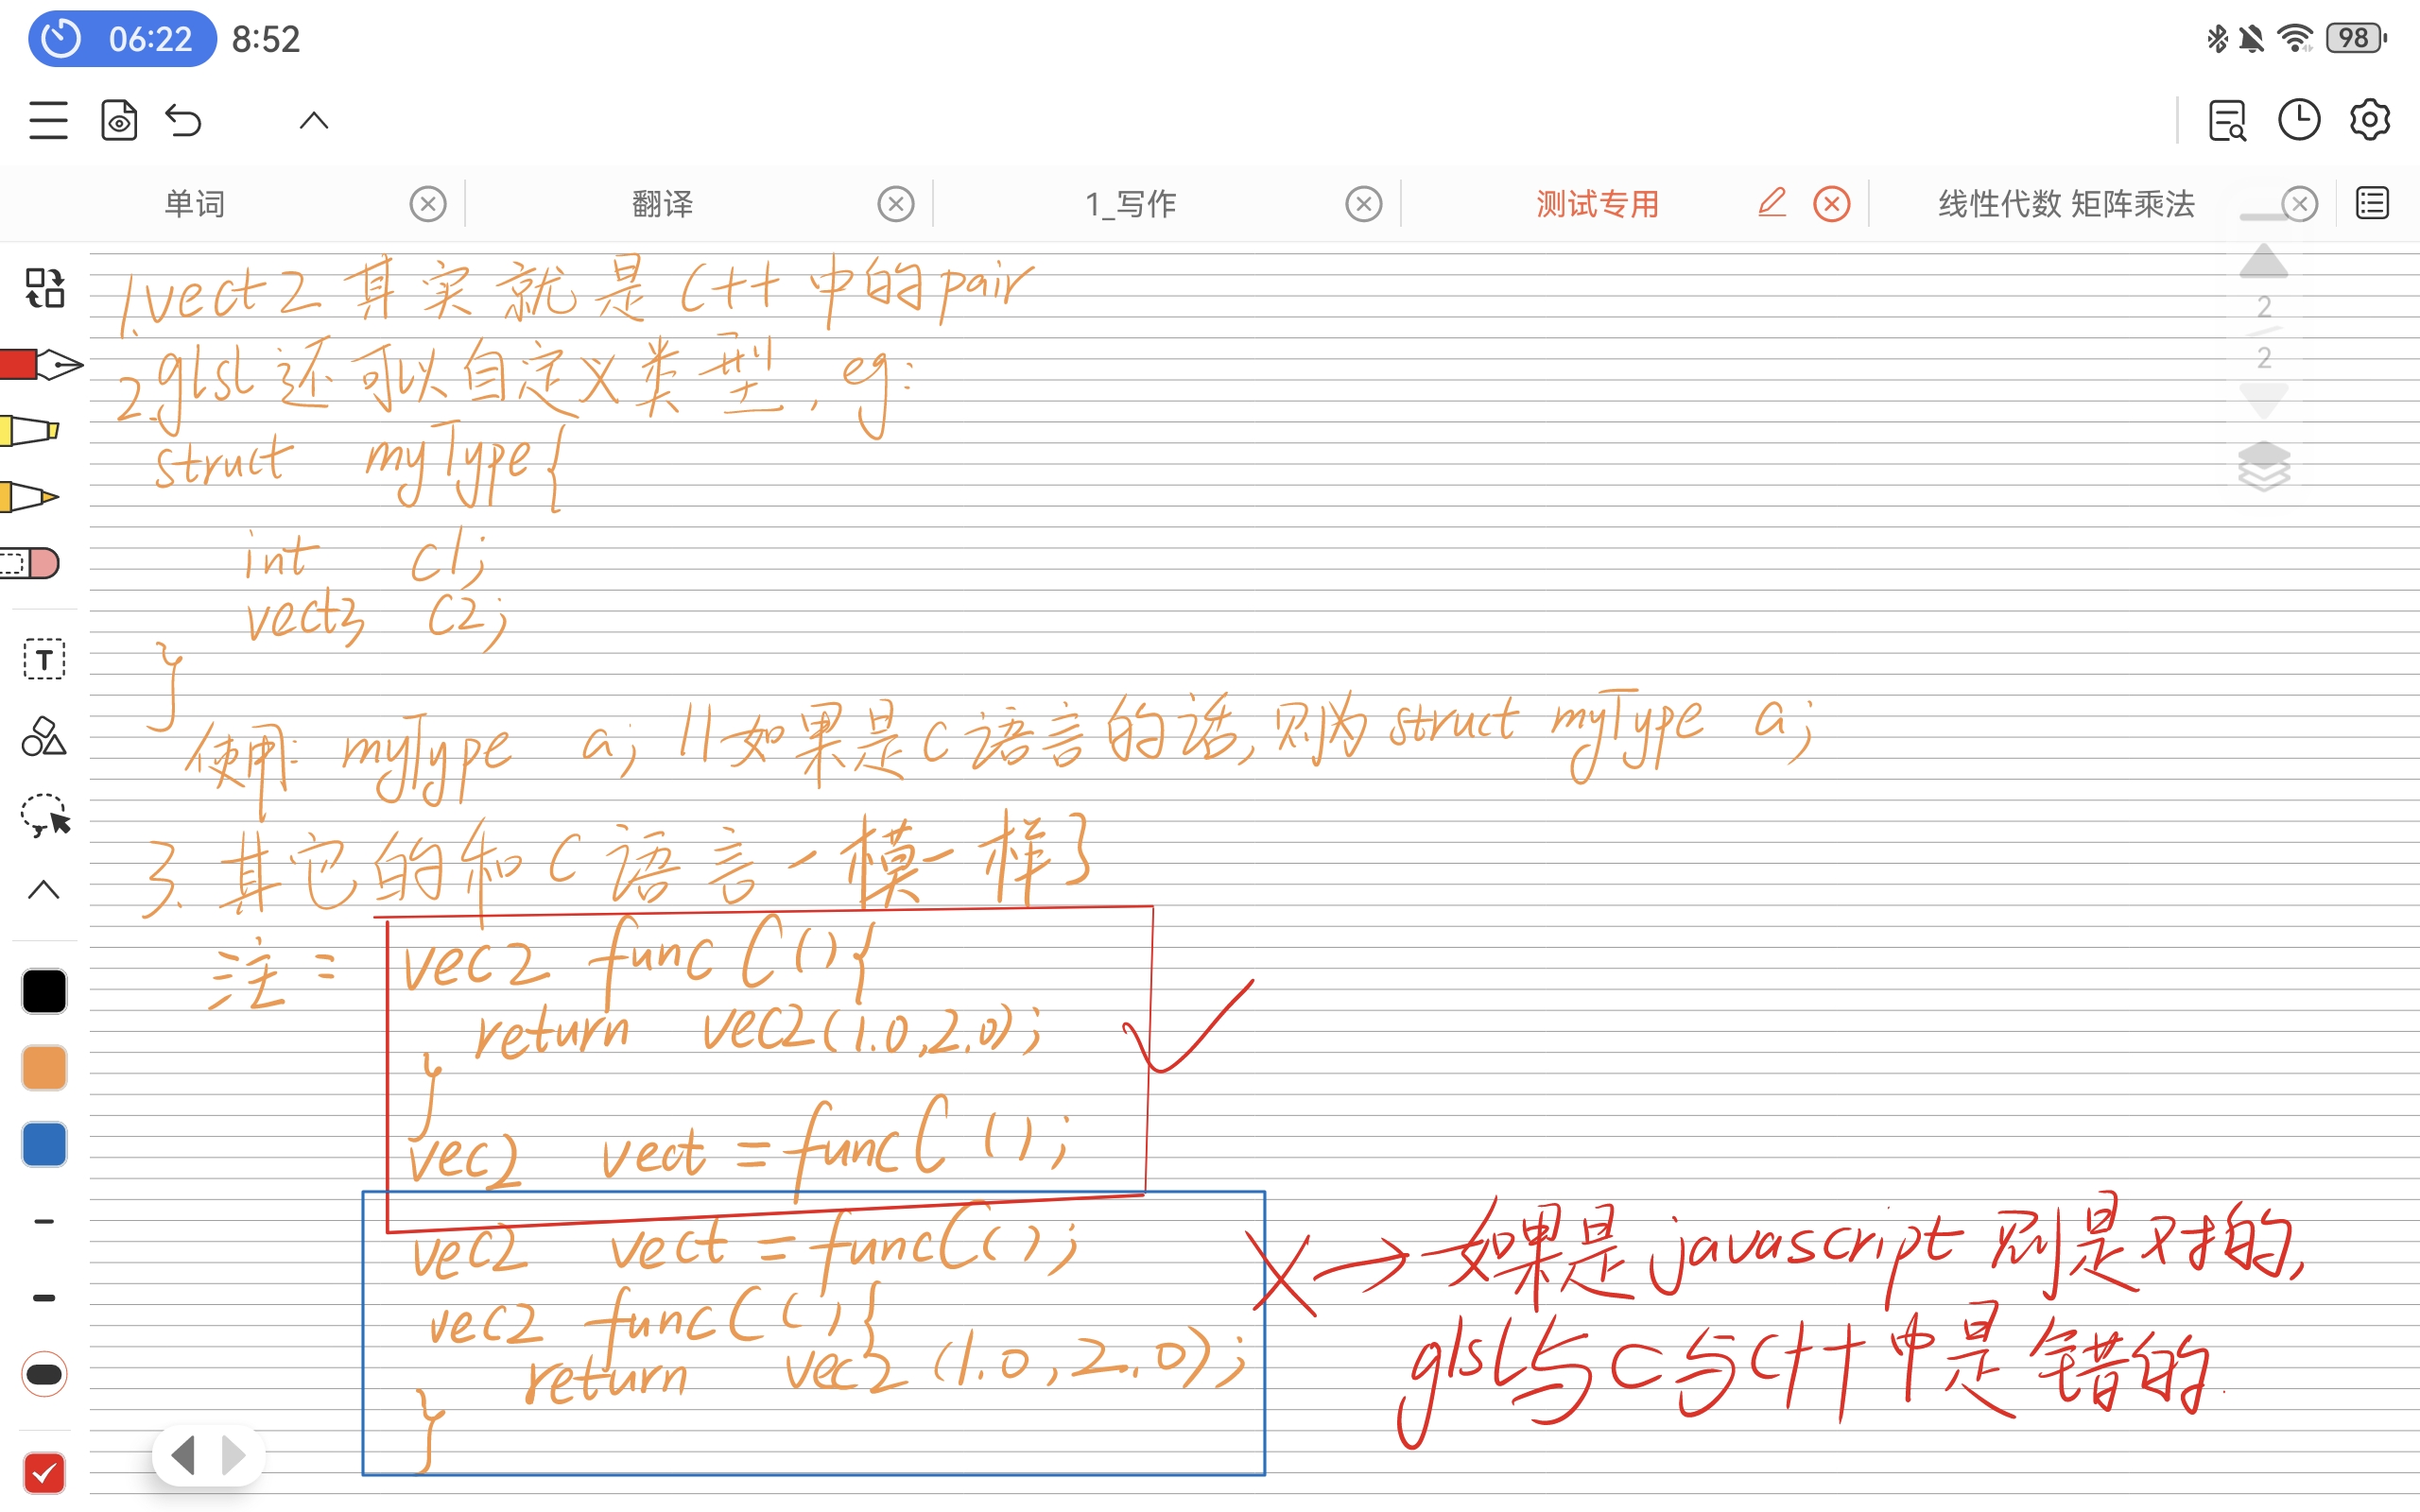 06:22 8:52 98
单词 翻译 1_写作 测试专用 线性代数 矩阵乘法
1.vect2 其实就是 C++ 中的pair
2
2.glsl 还可以自定义类型, eg:
2
struct myType{
int c1;
vect3 c2;
}
T
使用: myType a; //如果是C语言的话,则为 struct myType a;
3.其它的和C语言一模一样}
注: vec2 funcC(){
return vec2(1.0,2.0);
}
vec2 vect = funcC();
vec2 vect = funcC();
vec2 funcC(){
return vec2(1.0,2.0);
}
X→如果是javascript 则是对的,
glsl与C与C++中是错的.